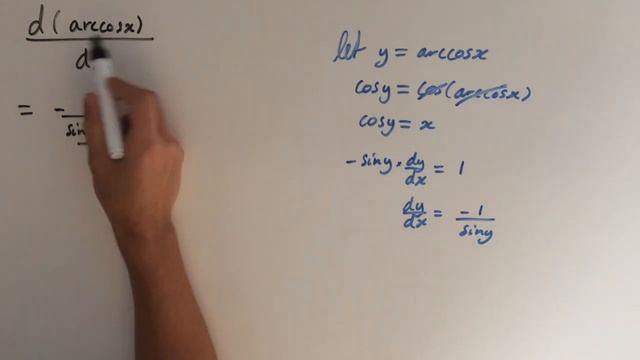 d(arccosx)
d
= -
sin
let y = arccosx
cosy = cos(arccosx)
cosy = x
-siny · dy/dx = 1
dy/dx = -1/siny